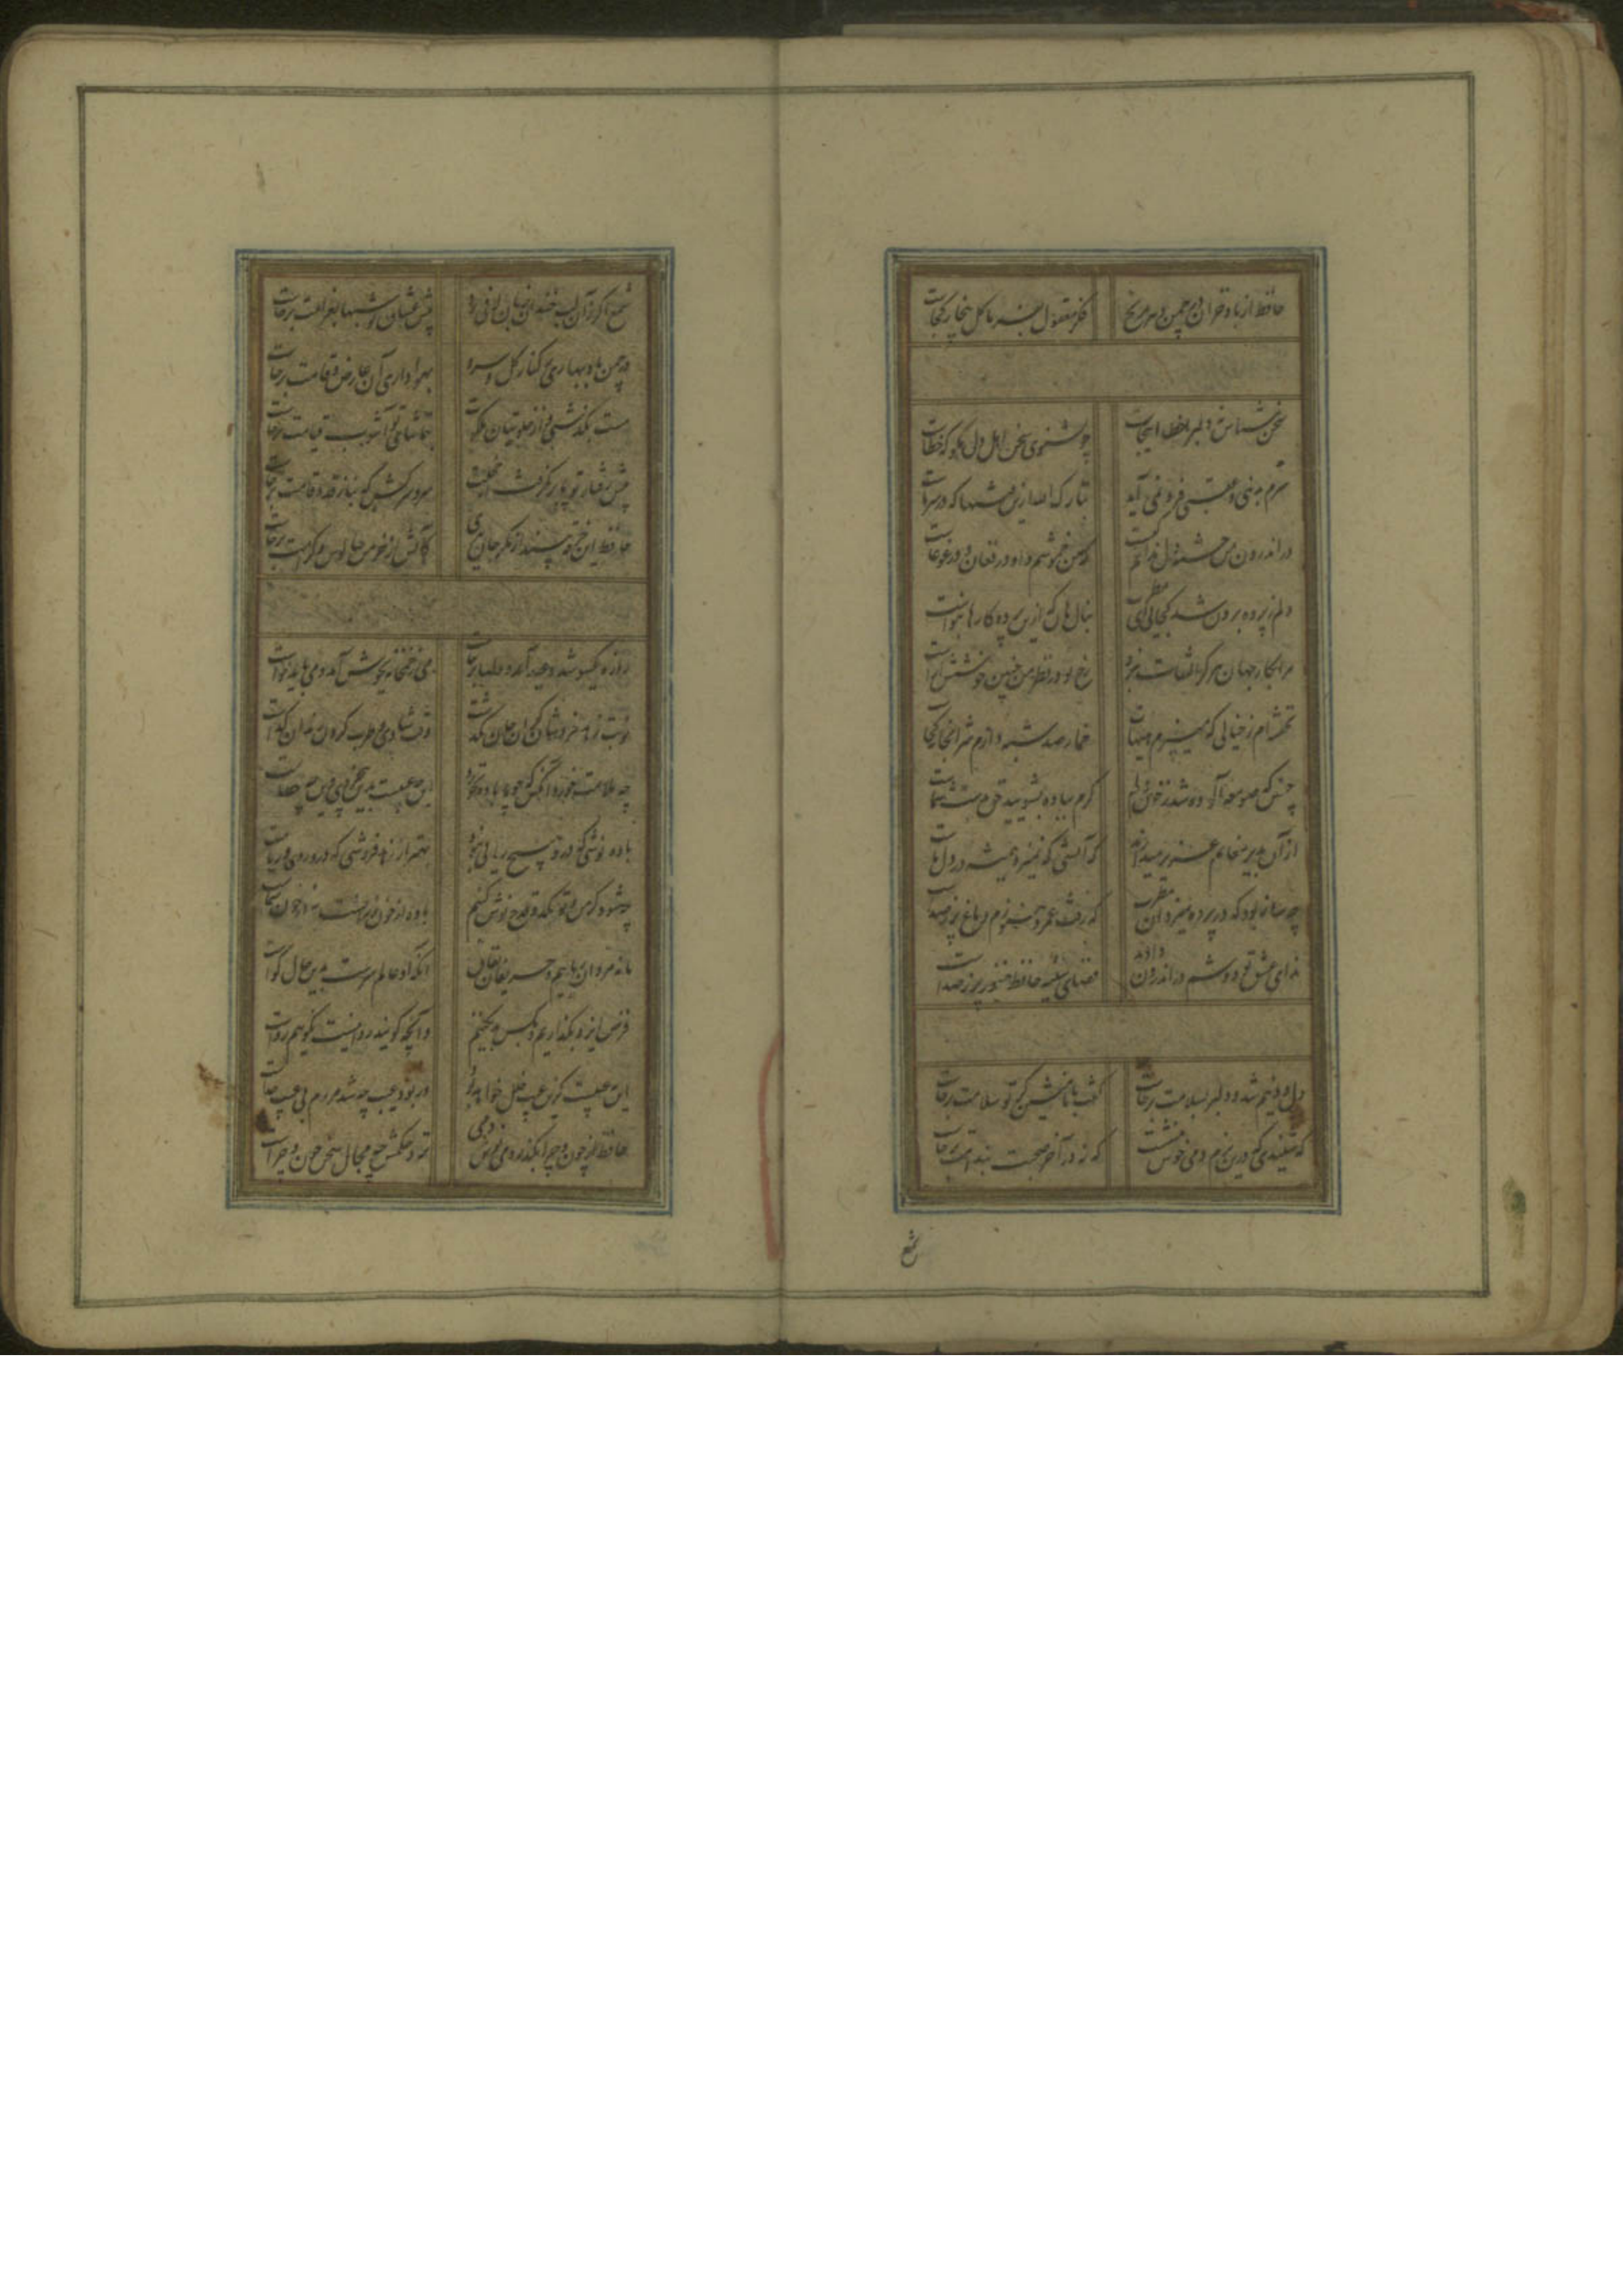 حافظ از باد خزان در چمن دهر مرنج فکر معقول بفرما گل بیخار کجاست
سخن شناس نه دلبرا خطا اینجاست چو بشنوی سخن اهل دل مگو که خطاست
سرم بدنیی و عقبی فرو نمی آید تبارک الله ازین فتنها که در سر ماست
در اندرون من خسته دل ندانم کیست که من خموشم و او در فغان و در غوغاست
دلم ز پرده برون شد کجائی ای مطرب بنال هان که ازین پرده کار ما بنواست
مرا بکار جهان هرگز التفات نبود رخ تو در نظر من چنین خوشش آراست
نخفته ام ز خیالی که میپزم شبهاست خمار صد شبه دارم شرابخانه کجاست
چنین که صومعه آلوده شد ز خون دلم گرم بباده بشویید حق بدست شماست
از آن بدیر مغانم عزیز میدارند که آتشی که نمیرد همیشه در دل ماست
چه ساز بود که در پرده میزد آن مطرب که رفت عمر و هنوزم دماغ پر ز صداست
ندای عشق تو دوشم در اندرون دادند فضای سینه حافظ هنوز پر ز صداست
دل و دینم شد و دلبر بملامت برخاست گفت با ما منشین کز تو سلامت برخاست
که شنیدی که درین بزم دمی خوش بنشست که نه در آخر صحبت بندامت برخاست
شمع
شمع اگر زان لب خندان بزبان لافی زد پیش عشاق تو شبها بغرامت برخاست
در چمن باد بهاری ز کنار گل و سرو بهواداری آن عارض و قامت برخاست
مست بگذشتی و از خلوتیان ملکوت بتماشای تو آشوب قیامت برخاست
پیش رفتار تو پا بر نگرفت از خجلت سرو سرکش که بناز قد و قامت برخاست
حافظ این خرقه بینداز مگر جان ببری کاتش از خرمن سالوس و کرامت برخاست
روزه یکسو شد و عید آمد و دلها برخاست می ز خمخانه بجوش آمد و می باید خواست
نوبت زهد فروشان گران جان بگذشت وقت شادی و طرب کردن رندان پیداست
چه ملامت بود آنکس که چو ما باده خورد این چه عیبست بدین بیخردی وین چه خطاست
باده نوشی که درو هیچ ریائی نبود بهتر از زهد فروشی که درو روی و ریاست
چه شود گر من و تو یکدو قدح نوش کنیم باده از خون رزانست نه از خون شماست
ما نه مردان ریاییم و حریفان نفاق آنکه او عالم سرست بدین حال گواست
فرض ایزد بگذاریم و بکس بد نکنیم و آنچه گویند روا نیست نگوییم رواست
این نه عیبست کزین عیب خلل خواهد بود ور بود عیب چه شد مردم بی عیب کجاست
حافظ از چون و چرا بگذر و می نوش دمی نزد حکمش چه مجال سخن چون و چراست